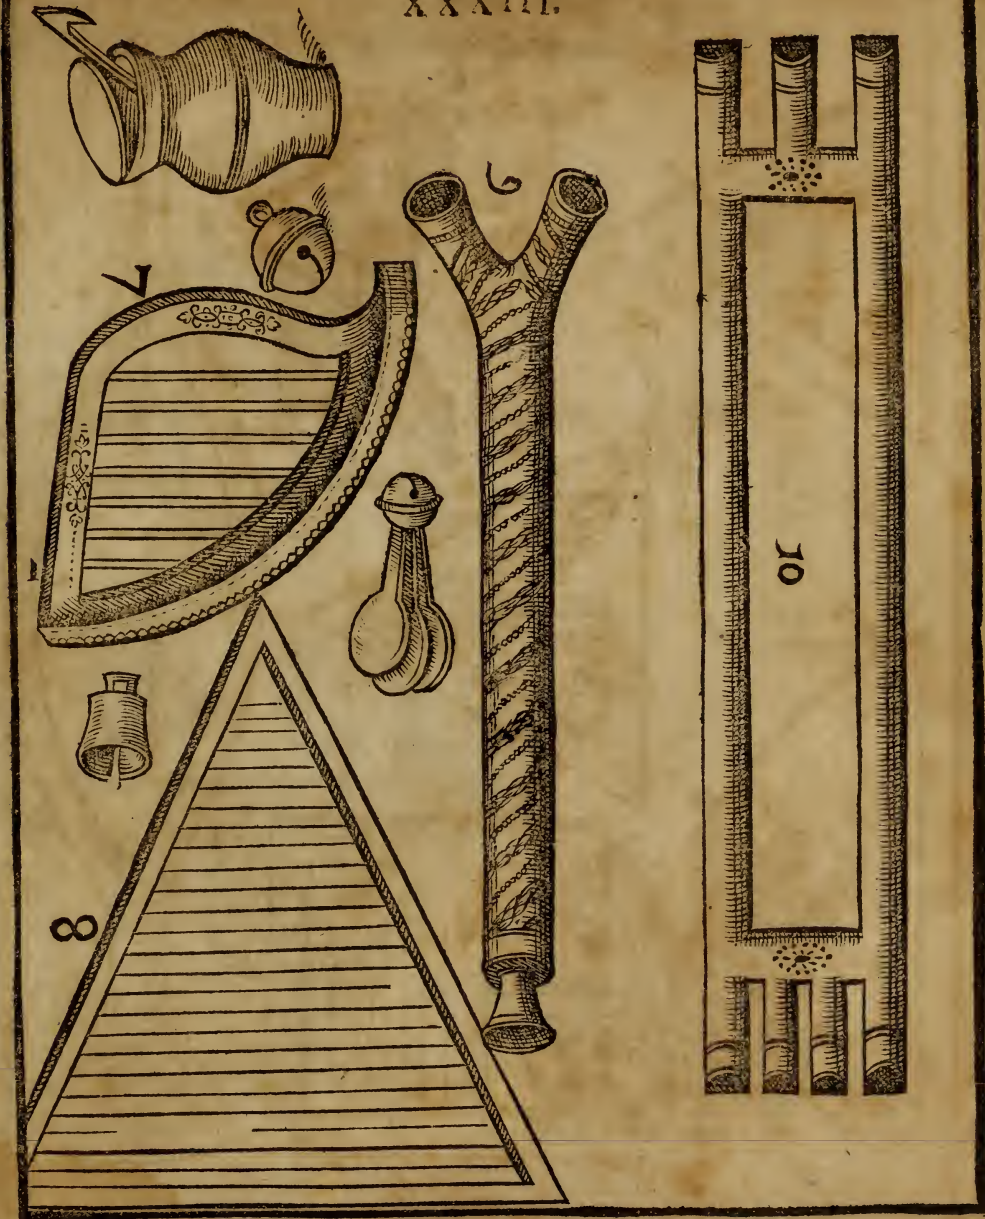 XXXIII.
7
8
9
10